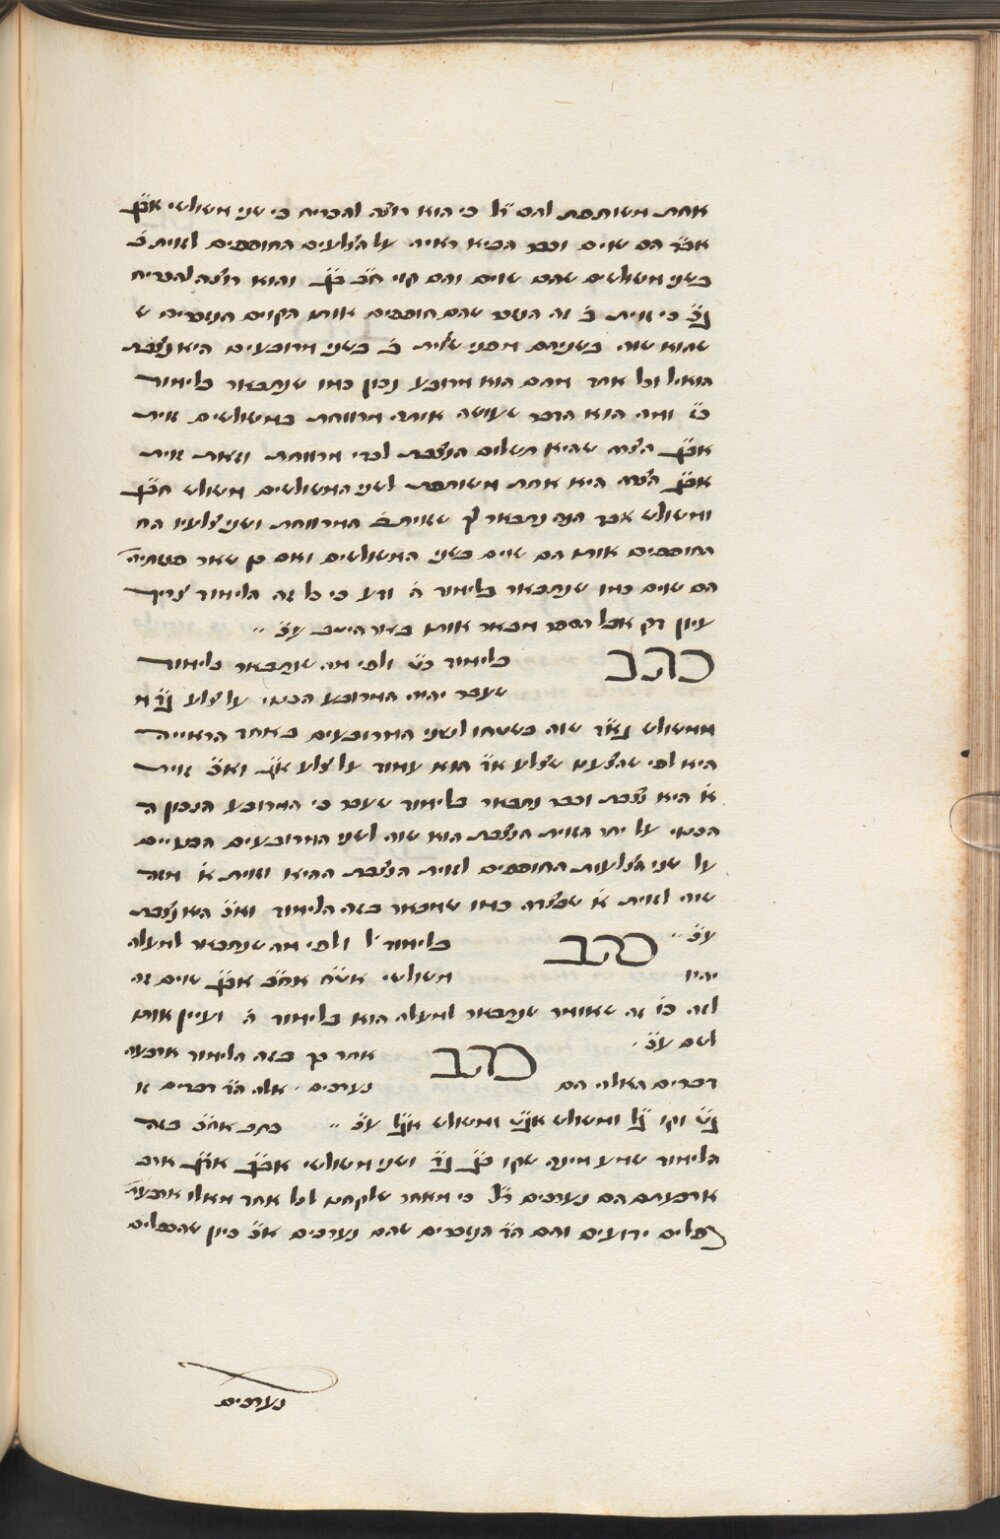 אחת משותפת להם ר״ל כי הוא רוצה להכריח כי שני משולשי אב״ן
אב״ד הם שוים וכבר הביא ראיה על הצלעים החוספים לזוית ב
בשני משולשים שהם שוים והם קוי ח״ב ב״ן והוא רוצה להכריח
ג״כ כי זוית ב זה הנשר שהם חוספים אותו הקוים הנזכרים ש
שהוא שוה בשניהם מפני שזוית ב בשני מרובעים היא נצבת
הואיל וכל אחד מהם הוא מרובע נכון כמו שנתבאר בלימוד
מ״ו ומה הוא הדבר שעושה אותה מרווחת במשולשים זוית
אב״ן הצח שהיא תשלום הנצבת לכדי מרווחת וזאת זוית
אב״ן הצחה היא אחת משותפת לשני המשולשים משולש חב״ן
ומשולש אבד הנה נתבאר לך שזוית ב המרווחת ושני צלעיו הח
החוספים אותו הם שוים בשני המשולשים ואם כן שאר פשתיה
הם שוים כמו שנתבאר בלימוד ה ודע כי כל זה הלימוד צריך
עיון דק אבל הספר מבאר אותו באר היטב ע״כ
כתב בלימוד מ״ט ולפי מה שנתבאר בלימוד
שעבר יהיה המרובע הכמוי על צלע ג״ד מ
ממשולש גא״ד שוה בשטחו לשני המרובעים באחד הראייה
היא לפי שהצענו שצלע א״ד הוא עמוד על צלע א״ג וא״כ זוית
א היא נצבת וכבר נתבאר בלימוד שעבר כי המרובע הנכון ה
הכמוי על יתר הזוית הנצבת הוא שוה לשני המרובעים הכמויים
על שני הצלעות החוספים לזוית הנצבת ההיא וזוית א מזה
שוה לזוית א שכצדה כמו שמבאר בזה הלימוד וא״כ היא נצבת
ע״כ כתב בלימוד ל ולפי מה שנתבאר למעלה
יהיו משולשי אט״ח אח״ב אב״ן שוים זה
לזה כו זה שאומר שנתבאר למעלה הוא בלימוד ה ועיין אותו
לשם ע״כ כתב אחר כך בזה הלימוד ארבעה
דברים האלה הם נערכים אלה הד׳ דברים א
ג״ט וקו ג״ל ומשולש אג״ט ומשולש אג״ל ע״כ כתב אח״כ בזה
הלימוד שמע מינה שקו ב״ן ג״ד ושני משולשי אב״ן אג״ד ארב
ארבעתם הם נערכים ר״ל כי מאחר שלקחנו לכל אחד מאלו ארבעה
כפלים ידועים והם הד׳ הנזכרים שהם נערכים א״כ כיון שהכפלים
נערכים